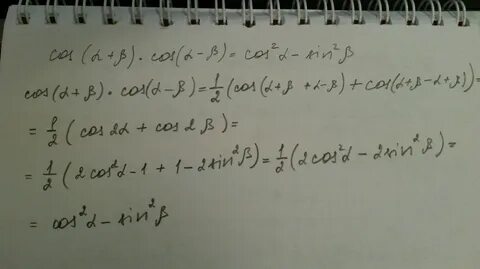 cos (α+β) · cos(α-β) = cos²α - sin²β
cos(α+β) · cos(α-β) = 1/2 (cos(α+β + α-β) + cos(α+β-α+β)) =
= 1/2 ( cos 2α + cos 2β ) =
= 1/2 ( 2 cos²α - 1 + 1 - 2 sin²β ) = 1/2 ( 2 cos²α - 2 sin²β ) =
= cos²α - sin²β